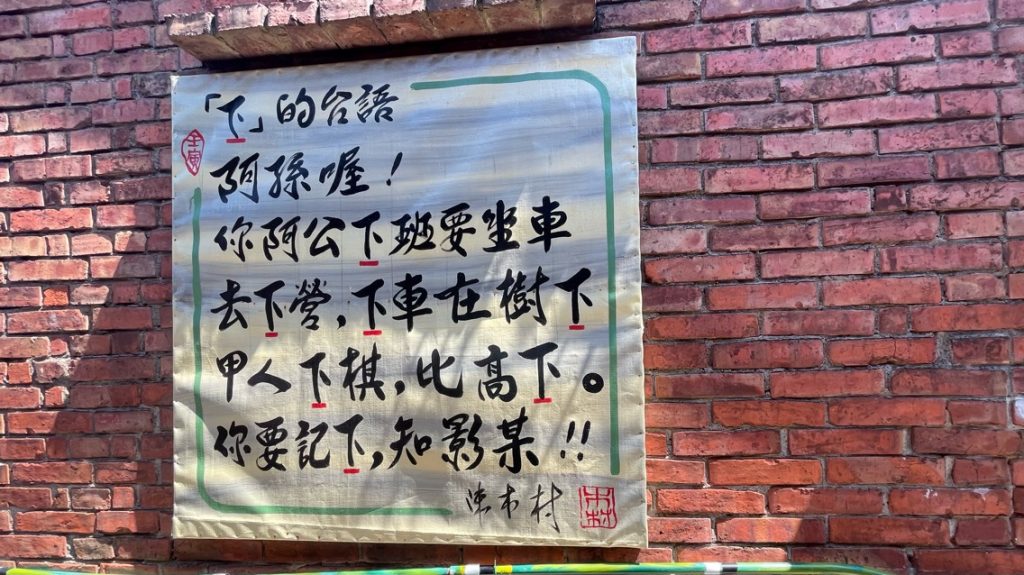 「下」的台語
阿孫喔！
你阿公下班要坐車
去下營，下車在樹下
甲人下棋，比高下。
你要記下，知影某！！
陳木村